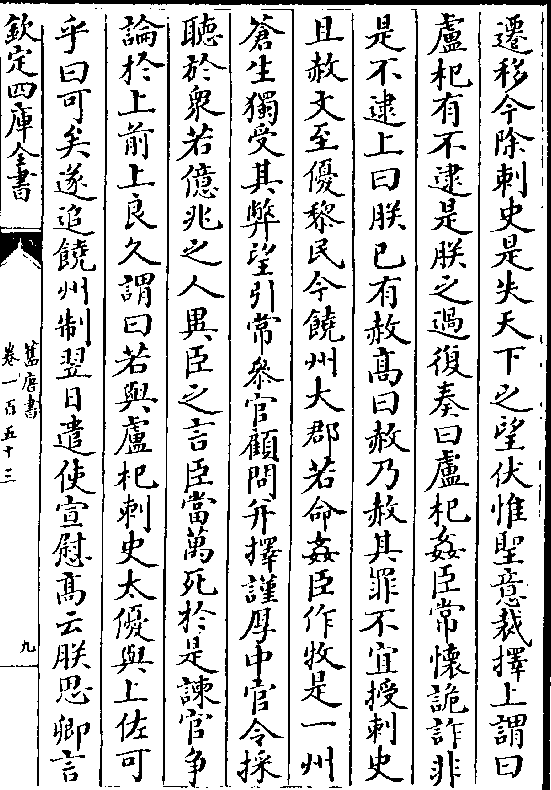 遷移今除刺史是失天下之望伏惟聖意裁擇上謂曰
盧杞有不逮是朕之過復奏曰盧杞姦臣常懷詭詐非
是不逮上曰朕已有赦髙曰赦乃赦其罪不宜授刺史
且赦文至優黎民今饒州大郡若命姦臣作牧是一州
蒼生獨受其弊望引常叅官顧問并擇謹厚中官令採
聽於衆若億兆之人異臣之言臣當萬死於是諫官争
論於上前上良久謂曰若與盧杞刺史太優與上佐可
乎曰可矣遂追饒州制翌日遣使宣慰髙云朕思卿言
欽定四庫全書
舊唐書
卷一百五十三
九